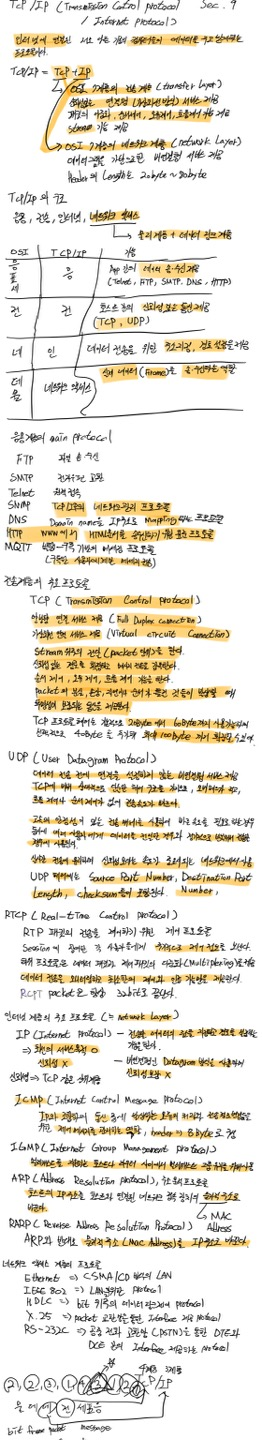 TCP/IP (Transmission Control protocol Sec. 9
/ Internet protocol)
인터넷에 연결된 서로 다른 기종의 컴퓨터들이 데이터를 주고 받을 수 있도록 하는
프로토콜이다.
TCP/IP = TCP + IP
OSI 7계층의 전송 계층 (transfer Layer)
신뢰성 있는 연결형 서비스 제공
패킷의 다중화, 순서제어, 오류제어, 흐름제어 기능 제공
Stream 기능 제공
OSI 7계층의 네트워크 계층 (network Layer)
데이터그램을 기반으로 하는 비연결형 서비스 제공
Header의 Length는 20byte ~ 60byte
TCP/IP의 구조
응용, 전송, 인터넷, 네트워크 액세스
물리계층 + 데이터 링크 계층
OSI TCP/IP 기능
응 표 세 응 App 간의 데이터 송·수신 제공
(Telnet, FTP, SMTP, DNS, HTTP)
전 전 호스트 들의 신뢰성 있는 통신 제공
(TCP, UDP)
네 인 데이터 전송을 위한 주소 지정, 경로 설정을 제공
데 물 네트워크 액세스 실제 데이터 (Frame)를 송·수신하는 역할
응용계층의 main protocol
FTP 파일 송·수신
SMTP 전자우편 교환
Telnet 원격 접속
SNMP TCP/IP의 네트워크관리 프로토콜
DNS Domain name을 IP주소로 Mapping하는 프로토콜
HTTP WWW에서 HTML문서를 송수신하기 위한 표준 프로토콜
MQTT 발행-구독 기반의 메시징 프로토콜
전송계층의 주요 프로토콜
TCP (Transmission Control protocol)
양방향 연결 서비스 제공 (Full Duplex Connection)
가상회선 연결 서비스 제공 (Virtual circuit Connection)
Stream 위주의 전달 (packet 단위)을 한다.
신뢰성 있는 경로를 확립하고 메시지 전송을 감독한다.
순서 제어, 오류 제어, 흐름 제어 기능을 한다.
Packet의 분실, 손상, 지연이나 순서가 틀린 것 등이 발생할 때
투명성이 보장되는 통신을 제공한다.
TCP 프로토콜의 헤더는 기본적으로 20byte에서 60byte까지 사용할 수 있는데
선택적으로 40byte를 추가해 최대 100byte까지 확장될 수 있다.
UDP (User Datagram Protocol)
데이터 전송 전에 연결을 설정하지 않는 비연결형 서비스 제공
TCP에 비해 상대적으로 단순한 헤더 구조를 가지므로, 오버헤드가 적고,
흐름 제어나 순서 제어가 없어 전송속도가 빠르다.
실시간 전송에 유리하며 신뢰성보다는 속도가 중요시되는 네트워크에서 사용
UDP 헤더에는 Source Port Number, Destination Port
Length, checksum 등이 포함된다. Number,
RTCP (Real-time Control protocol)
RTP 패킷의 전송 품질을 제어하기 위한 제어 프로토콜
Session에 참여한 각 참여자들에게 주기적으로 제어 정보를 보낸다.
하위 프로토콜은 데이터 패킷과 제어 패킷의 다중화 (Multiplexing)를 제공
데이터 전송을 모니터링하고 최소한의 제어와 인증 기능만을 제공한다.
RCPT packet은 항상 32bit로 끝난다.
인터넷 계층의 주요 프로토콜 (= network Layer)
IP (Internet Protocol) - 전송할 데이터에 주소를 지정하고 경로를 설정하는
기능을 한다.
⇒ 최선의 서비스특징 O
신뢰성 X - 비연결형인 Datagram 방식을 사용하며
신뢰성보장 X
신뢰성 ⇒ TCP같은 상위계층
ICMP (Internet Control Message Protocol)
IP와 조합하여 통신 중에 발생하는 오류의 처리와 전송 경로 변경 등을
위한 제어 메시지를 관리하는 역할, header ⇒ 8Byte로 구성
IGMP (Internet Group Management protocol)
멀티캐스트를 지원하는 호스트나 라우터 사이에서 멀티캐스트 그룹 유지를 위해 사용
ARP (Address Resolution protocol), 주소 분석 프로토콜
호스트의 IP 주소를 호스트와 연결된 네트워크 접속 장치의 물리적 주소로
바꾼다.
MAC
Address
RARP (Reverse Address Resolution Protocol)
ARP와 반대로 물리적 주소 (Mac Address)를 IP주소로 바꾼다.
네트워크 액세스 계층의 프로토콜
Ethernet ⇒ CSMA/CD 방식의 LAN
IEEE 802 ⇒ LAN을위한 protocol
HDLC ⇒ bit 위주의 데이터 링크제어 protocol
X.25 ⇒ packet 교환망을 통한 Interface 제공 protocol
RS-232C ⇒ 공중 전화 교환망 (PSTN)을 통한 DTE와
DCE 간의 Interface 제공하는 protocol
TCP/IP
물 데 네 전 세 표 응
bit frame packet message